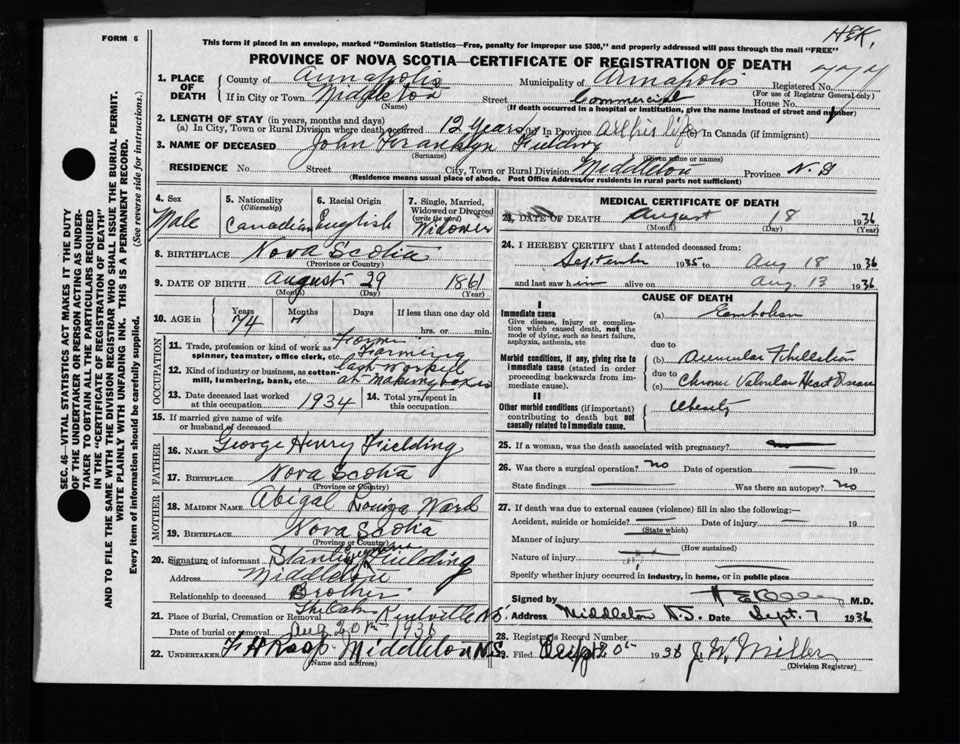 FORM 6
This form if placed in an envelope, marked "Dominion Statistics—Free, penalty for improper use $300," and properly addressed will pass through the mail "FREE"
H&K,
PROVINCE OF NOVA SCOTIA—CERTIFICATE OF REGISTRATION OF DEATH
1. PLACE OF DEATH
County of Annapolis Municipality of Annapolis Registered No.
(For use of Registrar General only)
If in City or Town Middleton Street Commercial House No.
(Name) (If death occurred in a hospital or institution, give the name instead of street and number)
2. LENGTH OF STAY (in years, months and days)
(a) In City, Town or Rural Division where death occurred 12 Years (b) In Province all his life (c) In Canada (if immigrant)
3. NAME OF DECEASED John Franklyn Fielding
(Surname) (Given name or names)
RESIDENCE No. Street City, Town or Rural Division Middleton Province N.S
(Residence means usual place of abode. Post Office Address for residents in rural parts not sufficient)
4. Sex Male
5. Nationality (Citizenship) Canadian
6. Racial Origin English
7. Single, Married, Widowed or Divorced (write the word) Widower
8. BIRTHPLACE Nova Scotia
(Province or Country)
9. DATE OF BIRTH August 29 1861
(Month) (Day) (Year)
10. AGE in Years Months Days If less than one day old
74 hrs. or min.
OCCUPATION
11. Trade, profession or kind of work as spinner, teamster, office clerk, etc. Farmer
Farming
12. Kind of industry or business, as cotton-mill, lumbering, bank, etc. last worked at making boxes
13. Date deceased last worked at this occupation 1934
14. Total yrs. spent in this occupation
15. If married give name of wife or husband of deceased
FATHER
16. NAME George Henry Fielding
17. BIRTHPLACE Nova Scotia
(Province or Country)
MOTHER
18. MAIDEN NAME Abigal Louiza Ward
19. BIRTHPLACE Nova Scotia
(Province or Country)
20. Signature of informant Stanley Fielding
Address Middleton
Relationship to deceased Brother
21. Place of Burial, Cremation or Removal The Oaks Kentville N.S.
Date of burial or removal Aug 20th 1936
22. UNDERTAKER F H Roop Middleton N.S.
(Name and address)
MEDICAL CERTIFICATE OF DEATH
23. DATE OF DEATH August 18 1936
(Month) (Day) (Year)
24. I HEREBY CERTIFY that I attended deceased from:
September 1935 to Aug 18 1936
and last saw him alive on Aug. 13 1936
CAUSE OF DEATH
I
Immediate cause
Give disease, injury or complication which caused death, not the mode of dying, such as heart failure, asphyxia, asthenia, etc
(a) Embolism
due to
Morbid conditions, if any, giving rise to immediate cause (stated in order proceeding backwards from immediate cause).
(b) Auricular Fibrillation
due to
(c) Chronic Valvular Heart Disease
II
Other morbid conditions (if important) contributing to death but not causally related to immediate cause.
Obesity
25. If a woman, was the death associated with pregnancy?
26. Was there a surgical operation? no Date of operation 19
State findings Was there an autopsy? no
27. If death was due to external causes (violence) fill in also the following:—
Accident, suicide or homicide? Date of injury 19
(State which)
Manner of injury
(How sustained)
Nature of injury
Specify whether injury occurred in industry, in home, or in public place
Signed by M.D.
Address Middleton N.S. Date Sept. 7 1936
28. Registrars Record Number
29. Filed 1936 J. W. Miller
(Division Registrar)
SEC. 46—VITAL STATISTICS ACT MAKES IT THE DUTY
OF THE UNDERTAKER OR PERSON ACTING AS UNDER-
TAKER "TO OBTAIN ALL THE PARTICULARS REQUIRED
IN THE "CERTIFICATE OF REGISTRATION OF DEATH"
AND TO FILE THE SAME WITH THE DIVISION REGISTRAR WHO SHALL ISSUE THE BURIAL PERMIT.
WRITE PLAINLY WITH UNFADING INK. THIS IS A PERMANENT RECORD.
Every item of information should be carefully supplied. (See reverse side for instructions.)